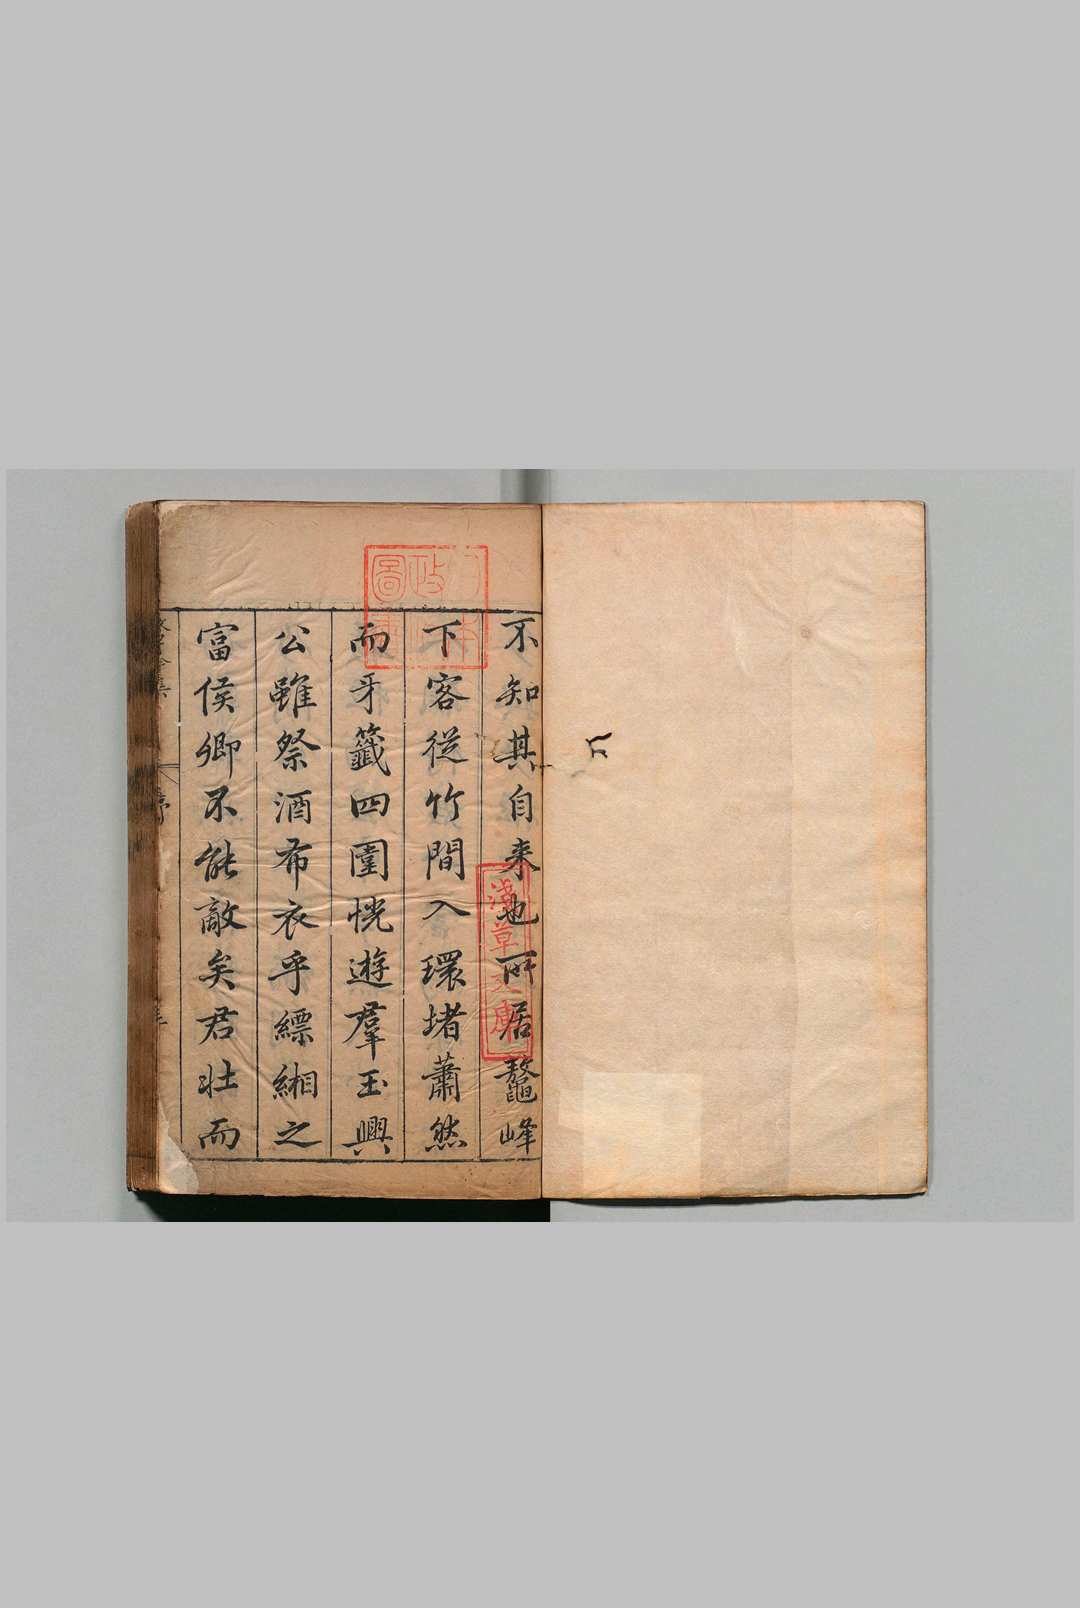 不知其自来也所居鼇峰
下客從竹間入環堵蕭然
而牙籤四圍恍遊羣玉興
公雖祭酒布衣乎縹緗之
富侯卿不能敵矣君壯而
淺草文庫